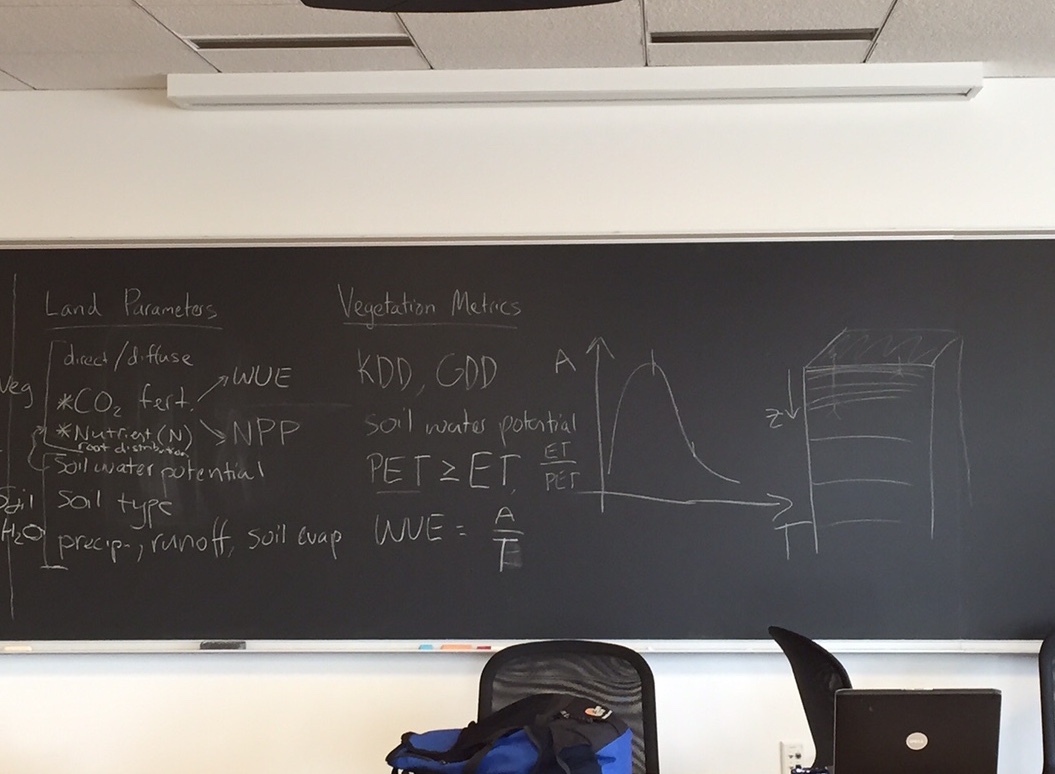 Land Parameters
direct/diffuse
*CO₂ fert.
WUE
*Nutrient (N)
NPP
root distribution
Soil water potential
Soil type
precip., runoff, soil evap
Veg
Soil
H₂O
Vegetation Metrics
KDD, GDD
soil water potential
PET ≥ ET, ET/PET
WUE = A/T
A
T
z
DELL